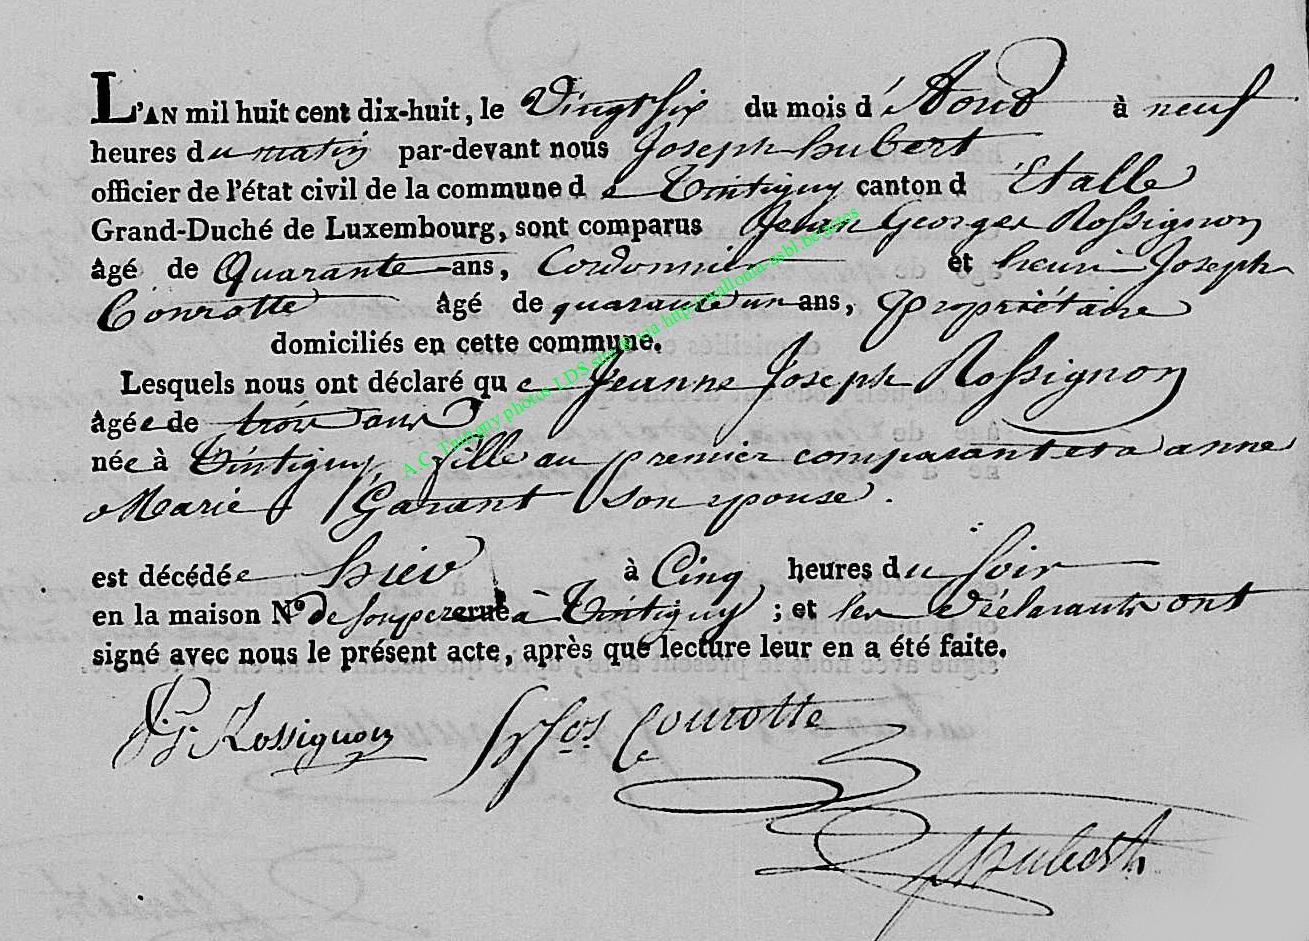 L'AN mil huit cent dix-huit, le Vingt six du mois d'Aout à neuf
heures du matin par-devant nous Joseph hubert
officier de l'état civil de la commune de Tintigny canton d'Etalle
Grand-Duché de Luxembourg, sont comparus Jean George Rossignon
âgé de Quarante ans, Cordonnier et henri Joseph
Courotte âgé de quarante un ans, propriétaire
domiciliés en cette commune.
Lesquels nous ont déclaré que Jeanne Joseph Rossignon
âgée de trois ans
née à Tintigny, fille au premier comparant et a anne
Marie Garant Son epouse.
est décédée hier à Cinq heures du Soir
en la maison N.º de rue à Tintigny ; et les déclarants ont
signé avec nous le présent acte, après que lecture leur en a été faite.
JG. Rossignon Hi Jos Courotte
JHubert
A.C. Tintigny photos LDS site via http://wallonia-asbl.be/actes